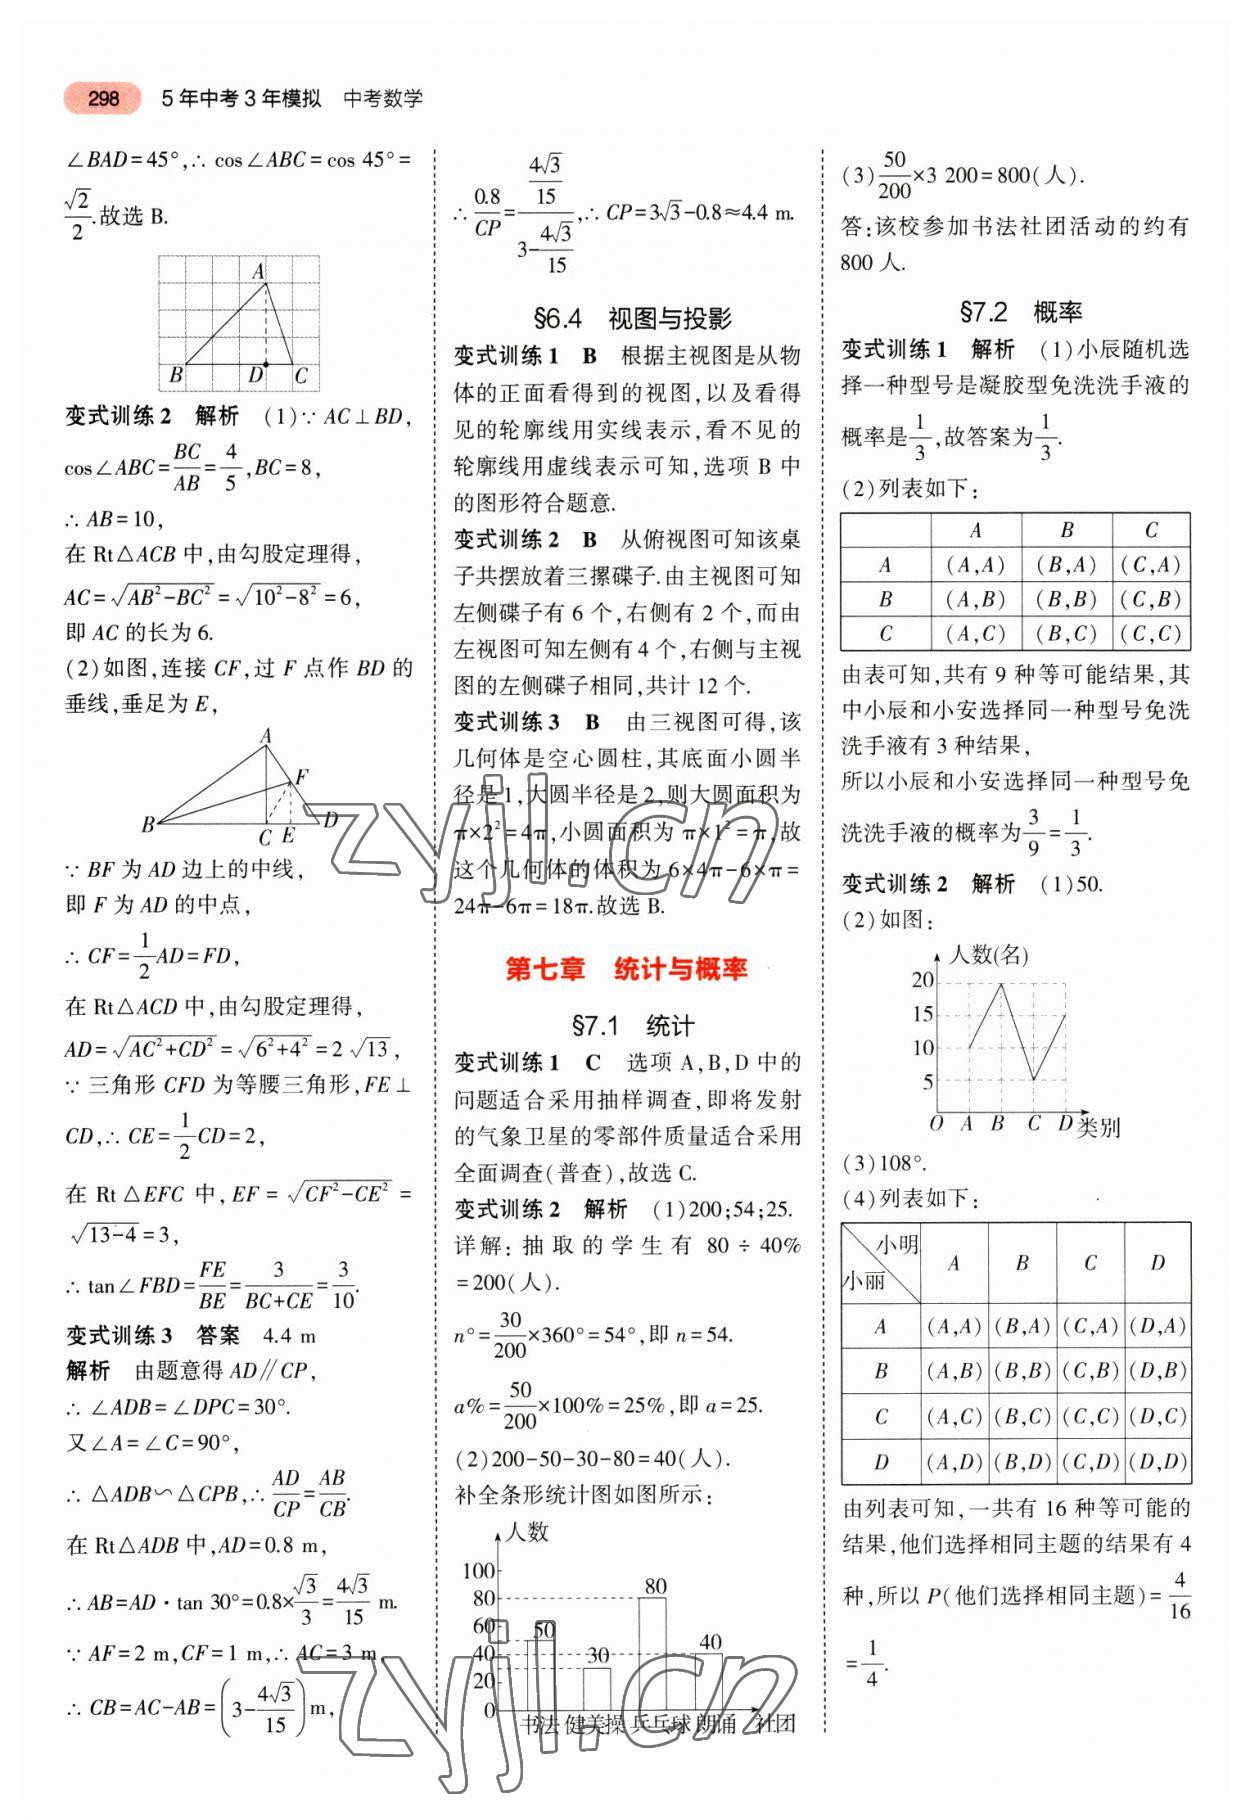 298 5年中考3年模拟 中考数学
∠BAD=45°,∴ cos∠ABC=cos 45°=
√2/2.故选 B.
A
B D C
变式训练2 解析 (1)∵ AC⊥BD,
cos∠ABC=BC/AB=4/5,BC=8,
∴ AB=10,
在 Rt△ACB 中,由勾股定理得,
AC=√(AB²-BC²)=√(10²-8²)=6,
即 AC 的长为 6.
(2)如图,连接 CF,过 F 点作 BD 的
垂线,垂足为 E,
A
F
B C E D
∵ BF 为 AD 边上的中线,
即 F 为 AD 的中点,
∴ CF=1/2AD=FD,
在 Rt△ACD 中,由勾股定理得,
AD=√(AC²+CD²)=√(6²+4²)=2√13,
∵ 三角形 CFD 为等腰三角形,FE⊥
CD,∴ CE=1/2CD=2,
在 Rt△EFC 中,EF=√(CF²-CE²)=
√(13-4)=3,
∴ tan∠FBD=FE/BE=3/(BC+CE)=3/10.
变式训练3 答案 4.4 m
解析 由题意得 AD∥CP,
∴ ∠ADB=∠DPC=30°.
又∠A=∠C=90°,
∴ △ADB∽△CPB,∴ AD/CP=AB/CB.
在 Rt△ADB 中,AD=0.8 m,
∴ AB=AD·tan 30°=0.8×√3/3=4√3/15 m.
∵ AF=2 m,CF=1 m,∴ AC=3 m,
∴ CB=AC-AB=(3-4√3/15)m,
∴ 0.8/CP=(4√3/15)/(3-4√3/15),∴ CP=3√3-0.8≈4.4 m.
§6.4 视图与投影
变式训练1 B 根据主视图是从物
体的正面看得到的视图,以及看得
见的轮廓线用实线表示,看不见的
轮廓线用虚线表示可知,选项 B 中
的图形符合题意.
变式训练2 B 从俯视图可知该桌
子共摆放着三摞碟子.由主视图可知
左侧碟子有 6 个,右侧有 2 个,而由
左视图可知左侧有 4 个,右侧与主视
图的左侧碟子相同,共计 12 个.
变式训练3 B 由三视图可得,该
几何体是空心圆柱,其底面小圆半
径是 1,大圆半径是 2,则大圆面积为
π×2²=4π,小圆面积为 π×1²=π,故
这个几何体的体积为 6×4π-6×π=
24π-6π=18π.故选 B.
第七章 统计与概率
§7.1 统计
变式训练1 C 选项 A,B,D 中的
问题适合采用抽样调查,即将发射
的气象卫星的零部件质量适合采用
全面调查(普查),故选 C.
变式训练2 解析 (1)200;54;25.
详解:抽取的学生有 80÷40%
=200(人).
n°=30/200×360°=54°,即 n=54.
a%=50/200×100%=25%,即 a=25.
(2)200-50-30-80=40(人).
补全条形统计图如图所示:
人数
100
80 80
60
50
40 40
30
20
0
书法 健美操 乒乓球 朗诵 社团
(3)50/200×3 200=800(人).
答:该校参加书法社团活动的约有
800 人.
§7.2 概率
变式训练1 解析 (1)小辰随机选
择一种型号是凝胶型免洗洗手液的
概率是1/3,故答案为1/3.
(2)列表如下:
A B C
A (A,A) (B,A) (C,A)
B (A,B) (B,B) (C,B)
C (A,C) (B,C) (C,C)
由表可知,共有 9 种等可能结果,其
中小辰和小安选择同一种型号免洗
洗手液有 3 种结果,
所以小辰和小安选择同一种型号免
洗洗手液的概率为3/9=1/3.
变式训练2 解析 (1)50.
(2)如图:
人数(名)
20
15
10
5
O A B C D 类别
(3)108°.
(4)列表如下:
小明 小丽 A B C D
A (A,A) (B,A) (C,A) (D,A)
B (A,B) (B,B) (C,B) (D,B)
C (A,C) (B,C) (C,C) (D,C)
D (A,D) (B,D) (C,D) (D,D)
由列表可知,一共有 16 种等可能的
结果,他们选择相同主题的结果有 4
种,所以 P(他们选择相同主题)=4/16
=1/4.
zyjl.cn
zyjl.cn